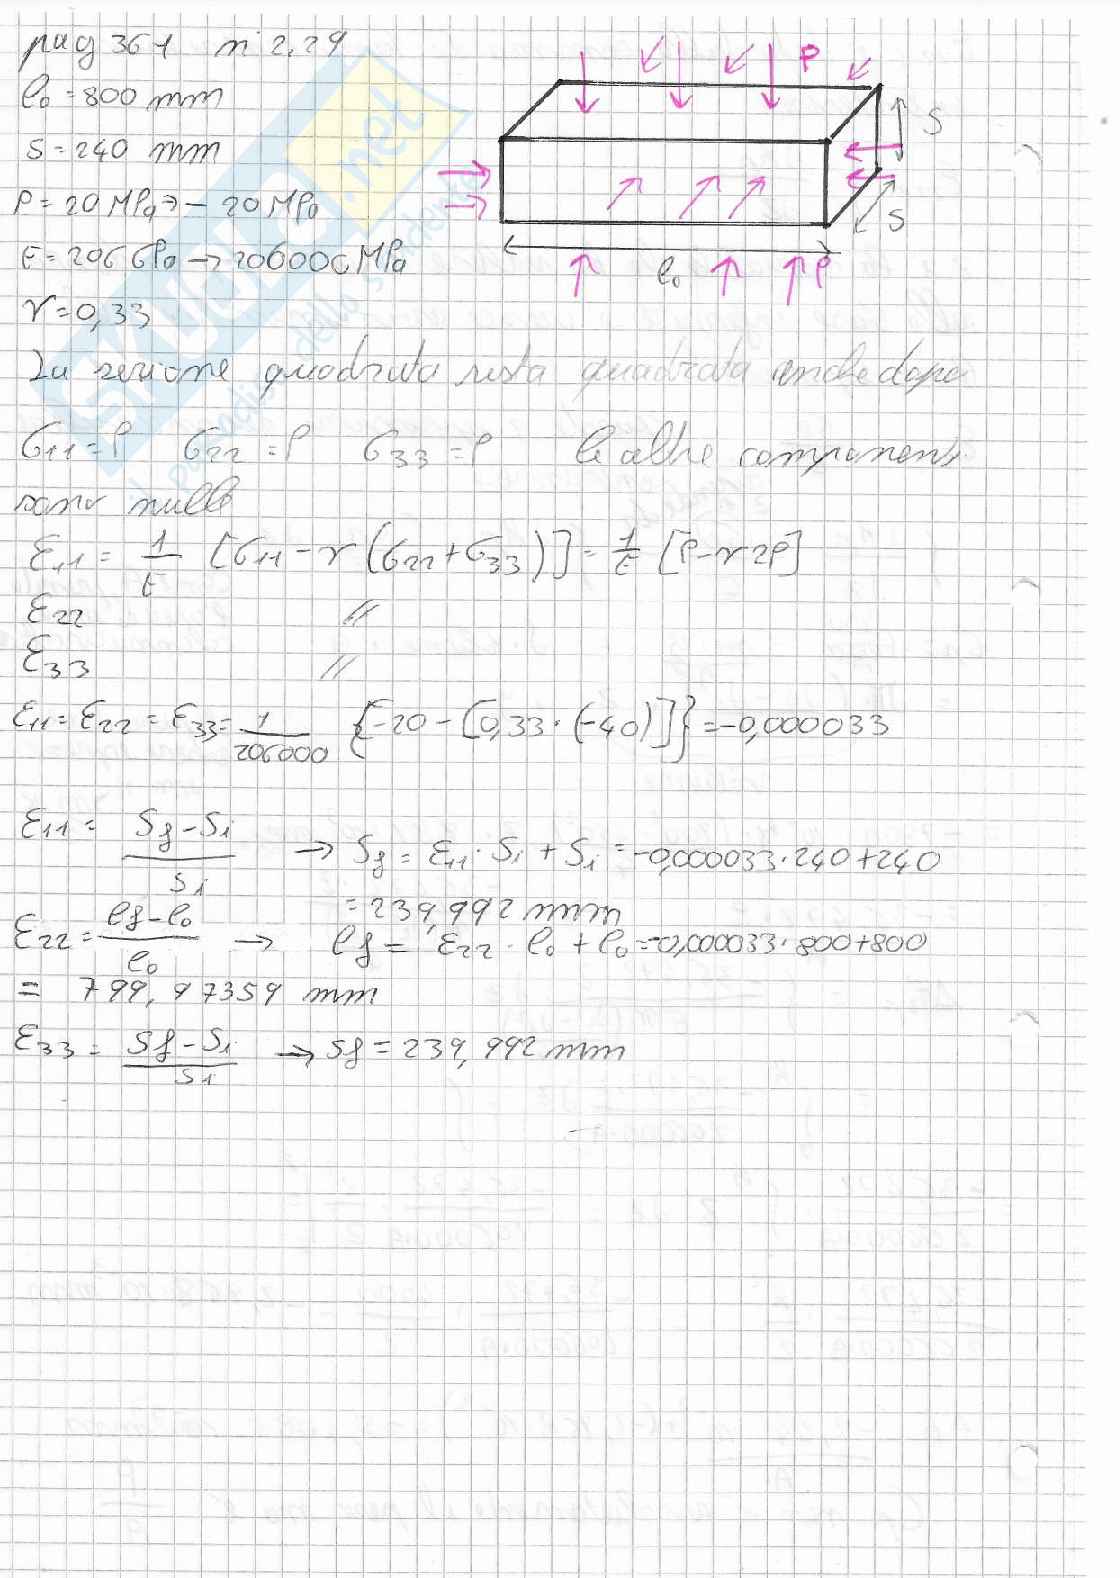 pag 361 n° 2.29
l₀ = 800 mm
S = 240 mm
P = 20 MPa → - 20 MPa
E = 206 GPa → 206000 MPa
ν = 0,33
P
S
S
l₀
P
La sezione quadrata resta quadrata anche dopo
σ₁₁ = P σ₂₂ = P σ₃₃ = P le altre componenti
sono nulle
ε₁₁ = 1/E [σ₁₁ - ν (σ₂₂ + σ₃₃)] = 1/E [P - ν 2P]
ε₂₂ //
ε₃₃ //
ε₁₁ = ε₂₂ = ε₃₃ = 1/206000 {-20 - [0,33 · (-40)]} = -0,000033
ε₁₁ = (Sf - Si)/Si → Sf = ε₁₁ · Si + Si = -0,000033 · 240 + 240
= 239,992 mm
ε₂₂ = (lf - l₀)/l₀ → lf = ε₂₂ · l₀ + l₀ = -0,000033 · 800 + 800
= 799,97359 mm
ε₃₃ = (Sf - Si)/Si → Sf = 239,992 mm
SKUOLA.net